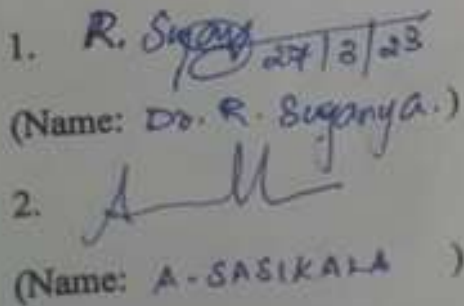 1. R. Sugany 27/3/23
(Name: Dr. R. Suganya.)
2.
(Name: A-SASIKALA )